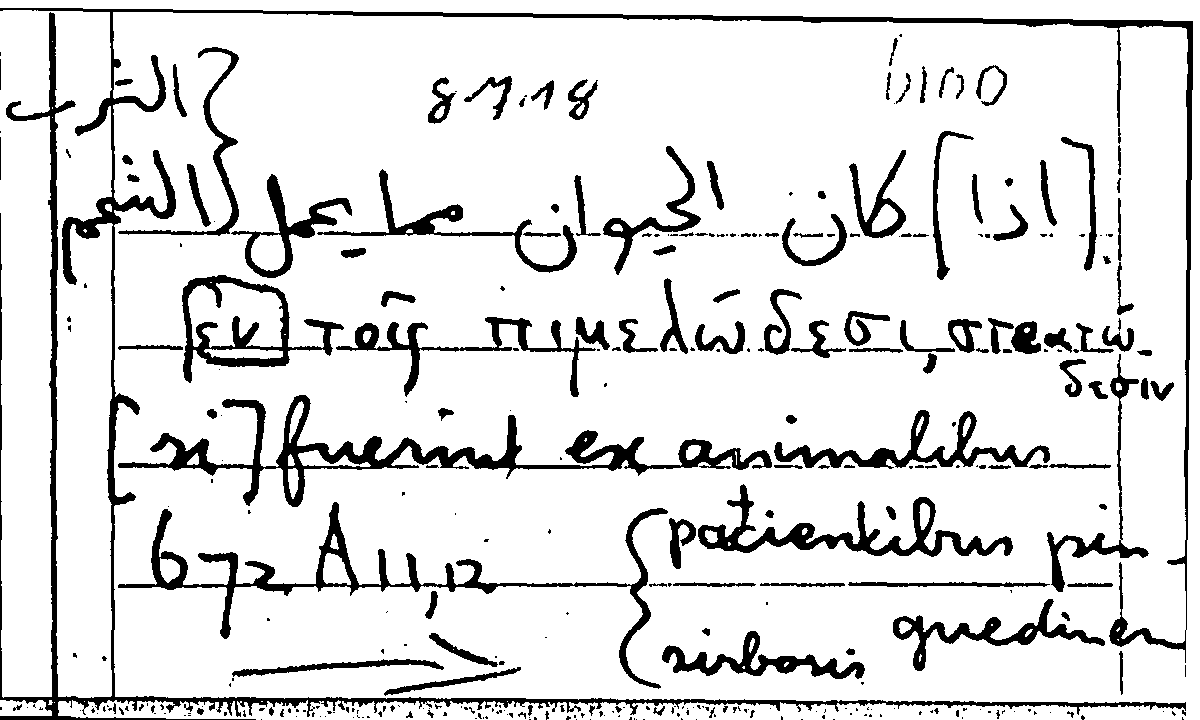 8.7.18 6100
[اذا] كان الحيوان مما يعمل { الثرب
الشحم
ἐν τοῖς πιμελώδεσι, στεατώ-
δεσιν
[si] fuerint ex animalibus
672 A 11,12 { patientibus pin-
guedinem
sirbosis